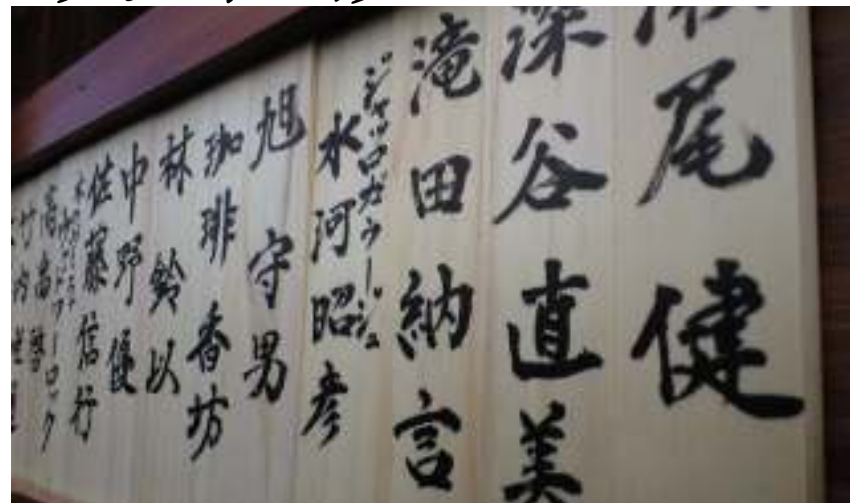 尾 健
深谷直美
滝田納言
ジャッロガラージュ
水河昭彦
旭 守男
珈琲香坊
林 鈴以
中野優
佐藤信行
ーロック
高島
竹内